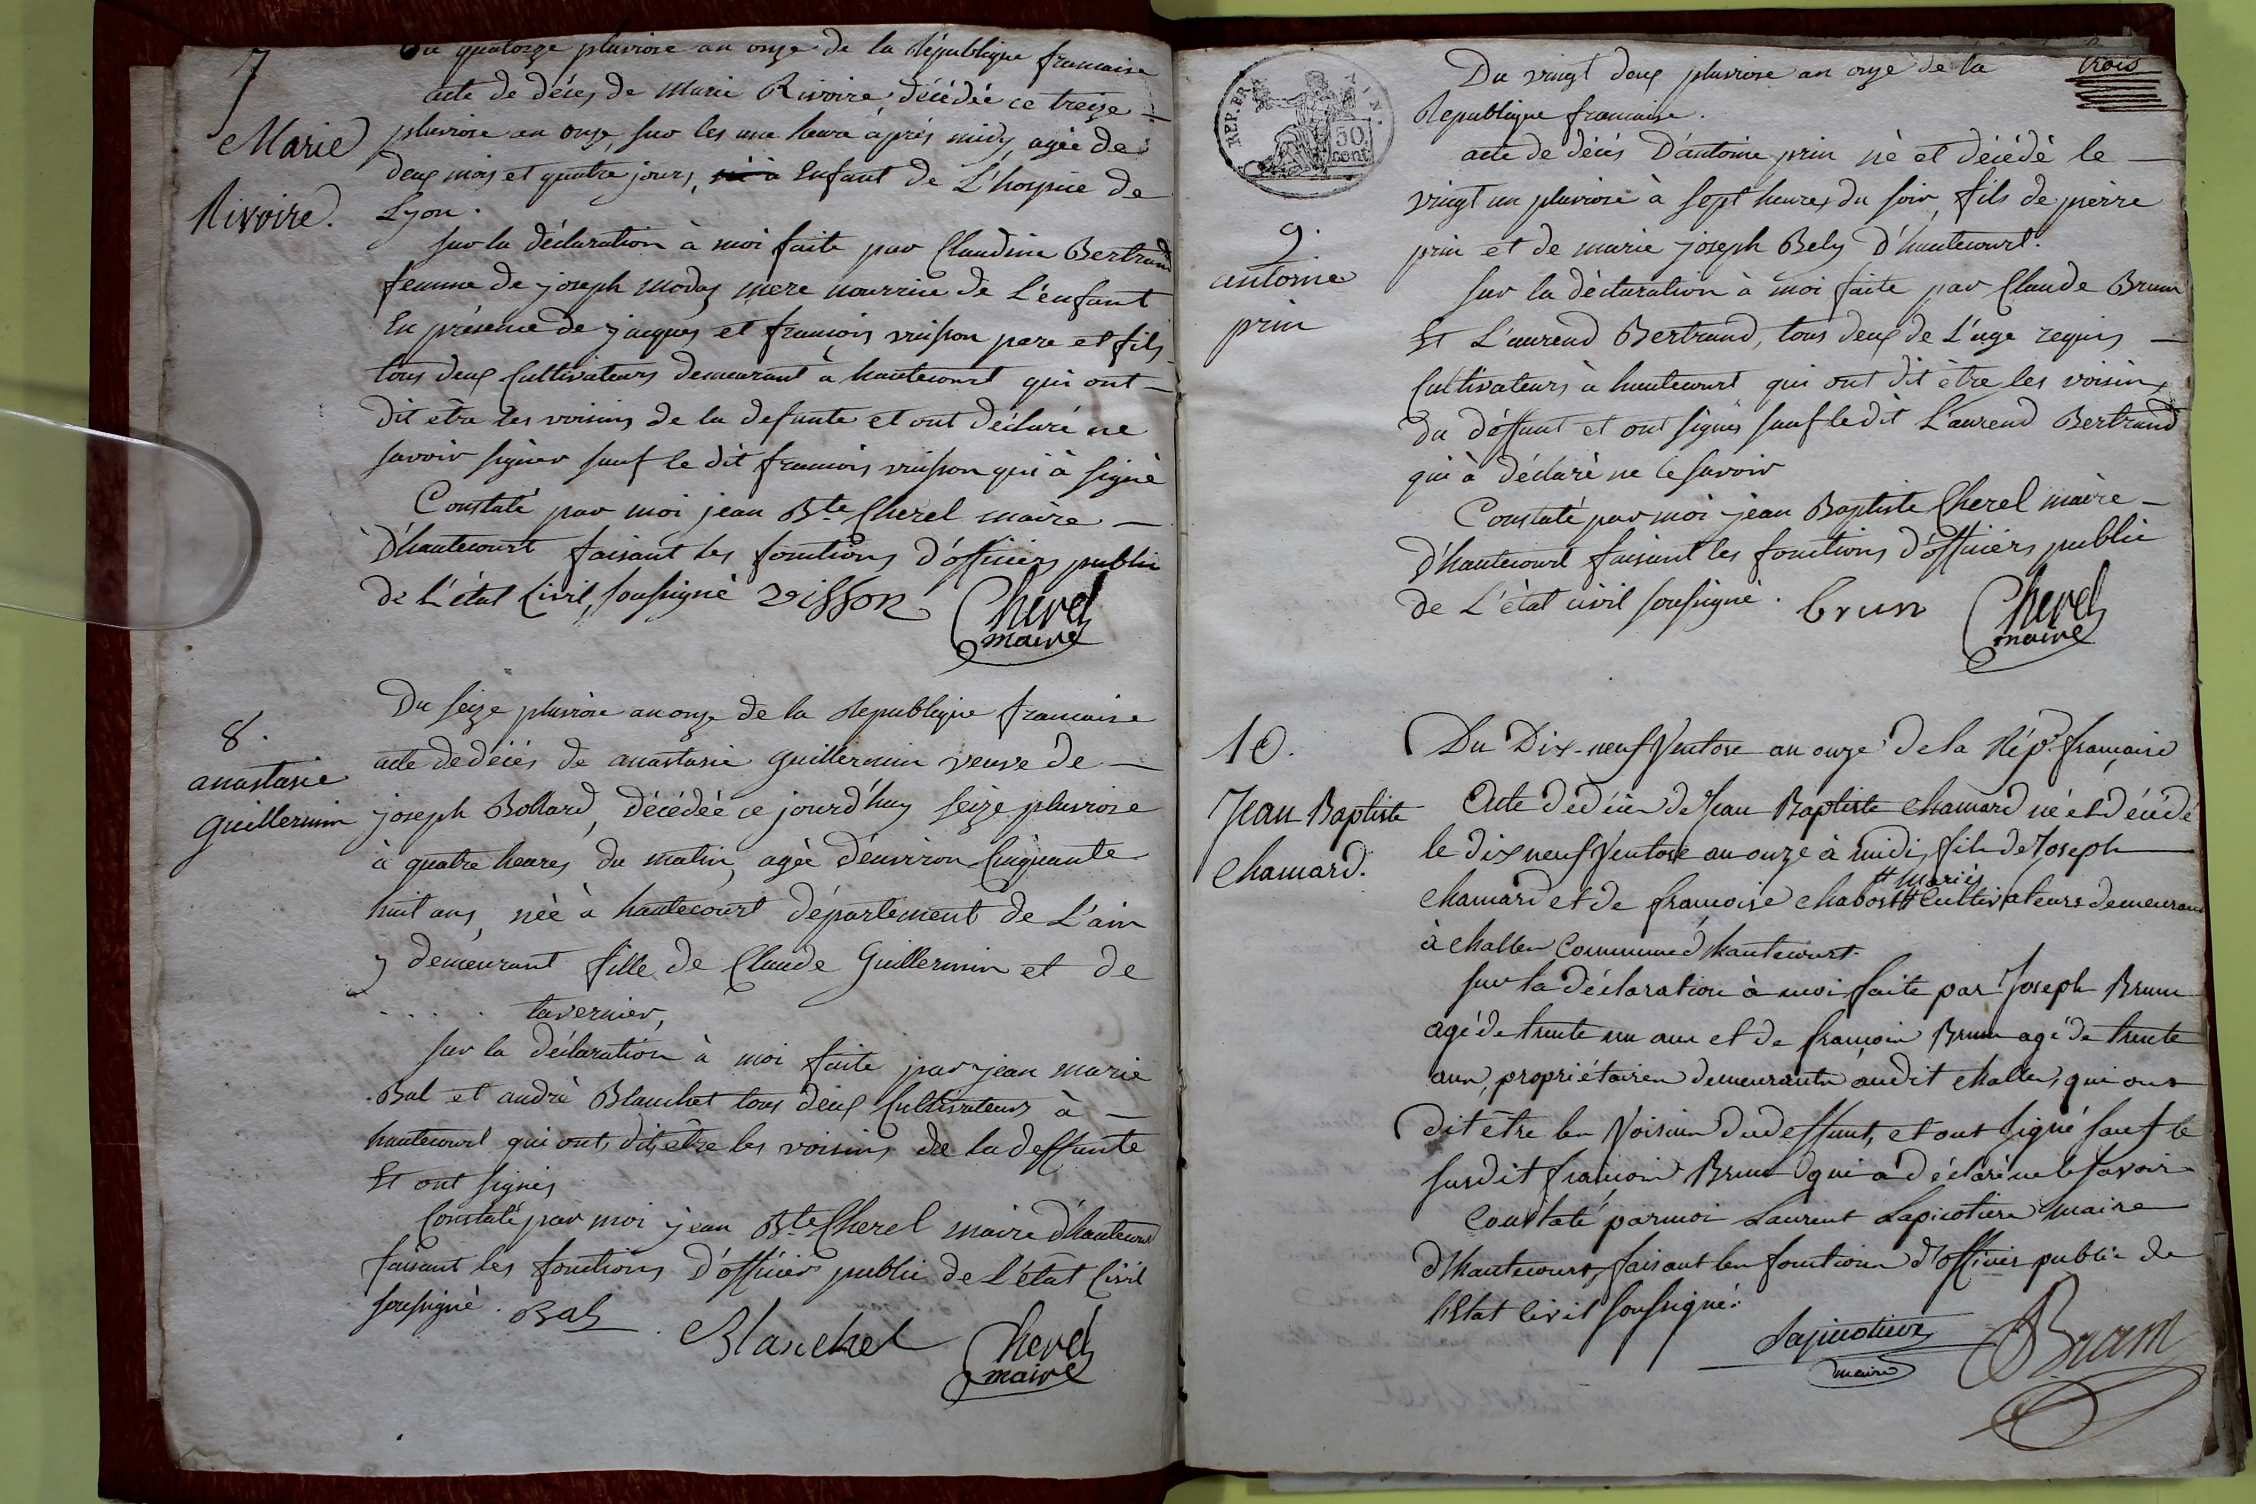 7
Marie
Rivoire.
Du quatorze pluviose an onze de la République francaise
acte de décés de Marie Rivoire, décédée ce treize
pluviose an onze, sur les une heure après midy agée de
deux mois et quatre jours, Enfant de L'hospice de
Lyon.
Sur la déclaration à moi faite par Claudine Bertrand
femme de joseph modas mere nourrice de L'enfant
En présence de jacques et francois vuisson pere et fils
tous deux Cultivateurs demeurant à hautecourt qui ont
dit être les voisins de la defunte et ont déclaré ne
savoir signer sauf le dit francois vuisson qui à signé
Constaté par moi jean Bte Cherel maire
D'hautecourt faisant les fonctions d'officier public
de L'état Civil, soussigné Visson Cherel
maire
8.
anastasie
Guillermin
Du seize pluviose an onze de la Republique francaise
acte de décés de anastasie guillermin veuve de
joseph Bollard, décédée ce jourd'huy seize pluviose
à quatre heures du matin, agée d'environ Cinquante
huit ans, née à hautecourt département de L'ain
y demeurant fille de Claude Guillermin et de
. . . . . tavernier,
Sur la déclaration à moi faite par jean marie
Bal et andré Blanchet tous deux Cultivateurs à
hautecourt qui ont dit être les voisins de la deffunte
Et ont signés
Constaté par moi jean Bte Cherel maire d'hautecourt
faisant les fonctions D'officier public de L'état Civil
soussigné. Bal Blanchet Cherel
maire
trois
REP. FRA
50
cent.
9.
antoine
prin
Du vingt deux pluviose an onze de la
Republique francaise.
acte de décés D'antoine prin né et décédé le
vingt un pluviose à sept heures du soir, fils de pierre
prin et de marie joseph Bely D'hautecourt.
Sur la déclaration à moi faite par Claude Brun
Et L'aurend Bertrand, tous deux de L'age requis
Cultivateurs à hautecourt qui ont dit être les voisins
du déffunt et ont signés sauf ledit L'aurend Bertrand
qui à déclaré ne le savoir
Constaté par moi jean Baptiste Cherel maire
D'hautecourt faisant les fonctions d'officiers public
de L'état civil soussigné. brun Cherel
maire
10.
Jean Baptiste
Chamard.
Du Dix-neuf Ventose an onze de la Rép. française
Acte de décès de Jean Baptiste Chamard né et décédé
le dix neuf Ventose an onze à midi, fils de Joseph
# mariés
Chamard et de françoise Chabost # Cultivateurs demeurans
à Challes Commune d'hautecourt.
Sur la déclaration à moi faite par Joseph Brun
agé de trente un ans et de françois Brun agé de trente
ans, propriétaires demeurants audit Challes, qui ont
dit être les Voisins du deffunt, et ont signé sauf le
susdit françois Brun qui a déclaré ne le savoir
Constaté par moi Laurent Lapicotiere Maire
d'Hautecourt, faisant les fonctions d'officier public de
l'Etat Civil soussigné.
Lapicotiere Brun
maire